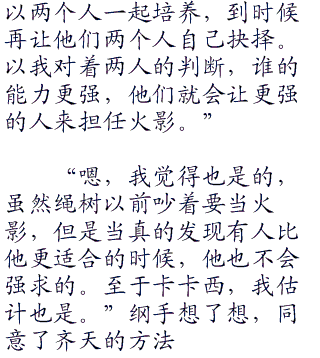 以两个人一起培养，到时候
再让他们两个人自己抉择。
以我对着两人的判断，谁的
能力更强，他们就会让更强
的人来担任火影。”
“嗯，我觉得也是的，
虽然绳树以前吵着要当火
影，但是当真的发现有人比
他更适合的时候，他也不会
强求的。至于卡卡西，我估
计也是。”纲手想了想，同
意了齐天的方法